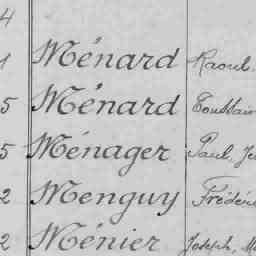 4
1 Ménard Raoul.
5 Ménard Toussain
5 Ménager Paul, Je
2 Menguy Frédéri
2 Ménier Joseph, Ma